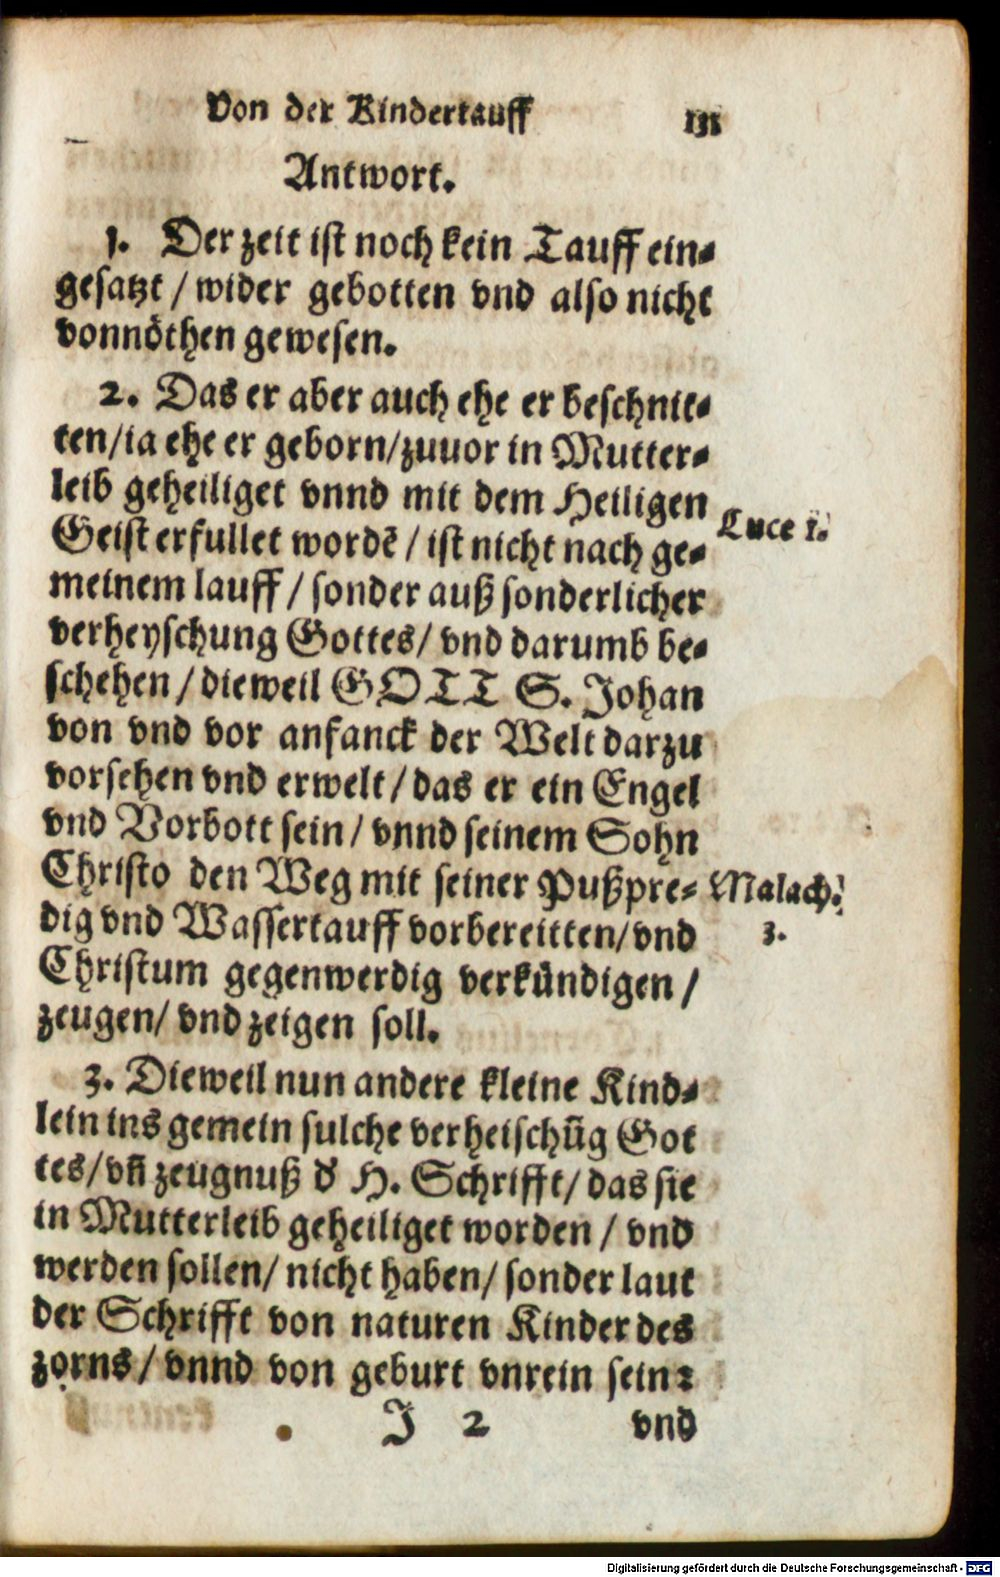 Von der Kindertauff 131
Antwort.
1. Der zeit ist noch kein Tauff ein⸗
gesatzt / wider gebotten vnd also nicht
vonnöthen gewesen.
2. Das er aber auch ehe er beschnit⸗
ten/ia ehe er geborn/zuuor in Mutter⸗
leib geheiliget vnnd mit dem Heiligen
Geist erfullet wordē / ist nicht nach ge⸗
Luce 1.
meinem lauff / sonder auß sonderlicher
verheyschung Gottes/ vnd darumb be⸗
schehen / dieweil GOTT S. Johan
von vnd vor anfanck der Welt darzu
vorsehen vnd erwelt / das er ein Engel
vnd Vorbott sein / vnnd seinem Sohn
Christo den Weg mit seiner Pußpre⸗
Malach.
dig vnd Wassertauff vorbereitten/ vnd
3.
Christum gegenwerdig verkündigen /
zeugen/ vnd zeigen soll.
3. Dieweil nun andere kleine Kind⸗
lein ins gemein sulche verheischūg Got
tes/ vn̄ zeugnuß d' H. Schrifft/ das sie
in Mutterleib geheiliget worden / vnd
werden sollen/ nicht haben/ sonder laut
der Schrifft von naturen Kinder des
zorns / vnnd von geburt vnrein sein:
J 2 vnd
Digitalisierung gefördert durch die Deutsche Forschungsgemeinschaft - DFG